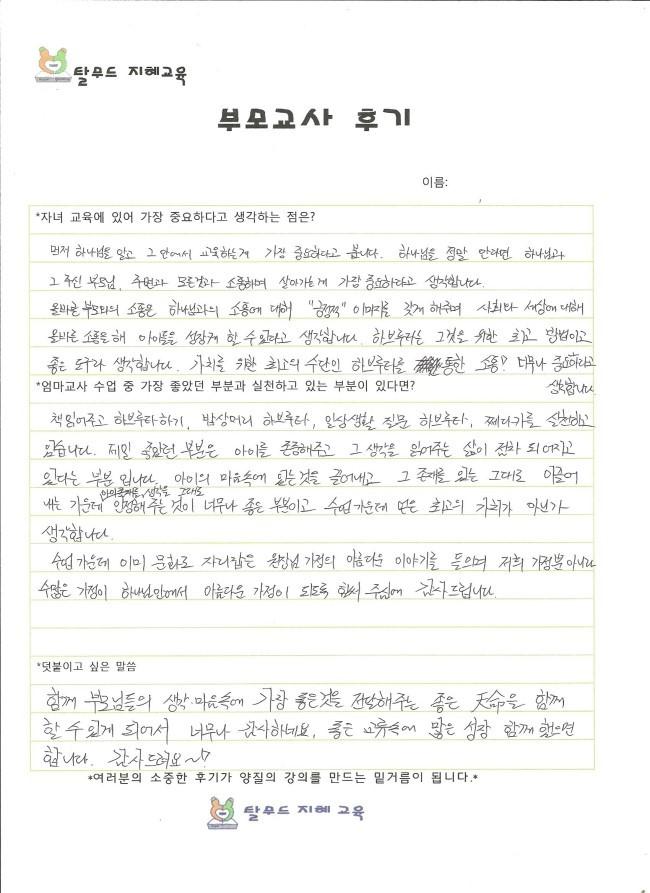 탈무드 지혜교육
부모교사 후기
이름:
*자녀 교육에 있어 가장 중요하다고 생각하는 점은?
먼저 하나님을 알고 그 안에서 교육하는게 가장 중요하다고 봅니다. 하나님을 정말 안다면 하나님과
그 주신 부모님, 주변과 모든것과 소통하며 살아가는게 가장 중요하다고 생각합니다.
올바른 부모와의 소통은 하나님과의 소통에 대해 "긍정적" 이미지를 갖게 해주며 사회와 세상에 대해
올바른 소통을 해 아이들을 성장케 할 수 있다고 생각합니다. 하브루타는 그것을 위한 최고 방법이고
좋은 도구라 생각합니다. 가치를 위한 최고의 수단인 하브루타를 통한 소통? 너무나 중요하다고
생각합니다.
*엄마교사 수업 중 가장 좋았던 부분과 실천하고 있는 부분이 있다면?
책읽어주고 하브루타하기, 밥상머리 하브루타, 일상생활 질문 하브루타, 쩨다카를 실천하고
있습니다. 제일 좋았던 부분은 아이를 존중해주고 그 생각을 읽어주는 삶이 전차 되어지고
있다는 부분입니다. 아이의 마음속에 있는것을 끌어내고 그 존재를 있는 그대로 이끌어
내는 가운데 아이존재를, 생각을 그대로 인정해 주는것이 너무나 좋은 부분이고 수업 가운데 얻은 최고의 가치가 아닌가
생각합니다.
수업 가운데 이미 문화로 자리잡은 원장님 가정의 아름다운 이야기를 들으며 저희 가정뿐 아니라
수많은 가정이 하나님안에서 아름다운 가정이 되도록 힘써 주심에 감사드립니다.
*덧붙이고 싶은 말씀
함께 부모님들의 생각·마음속에 가장 좋은것을 전달해주는 좋은 天命을 함께
할 수 있게 되어서 너무나 감사하네요, 좋은 교류속에 많은 성장 함께 했으면
합니다. 감사드려요~♡
*여러분의 소중한 후기가 양질의 강의를 만드는 밑거름이 됩니다.*
탈무드 지혜 교육